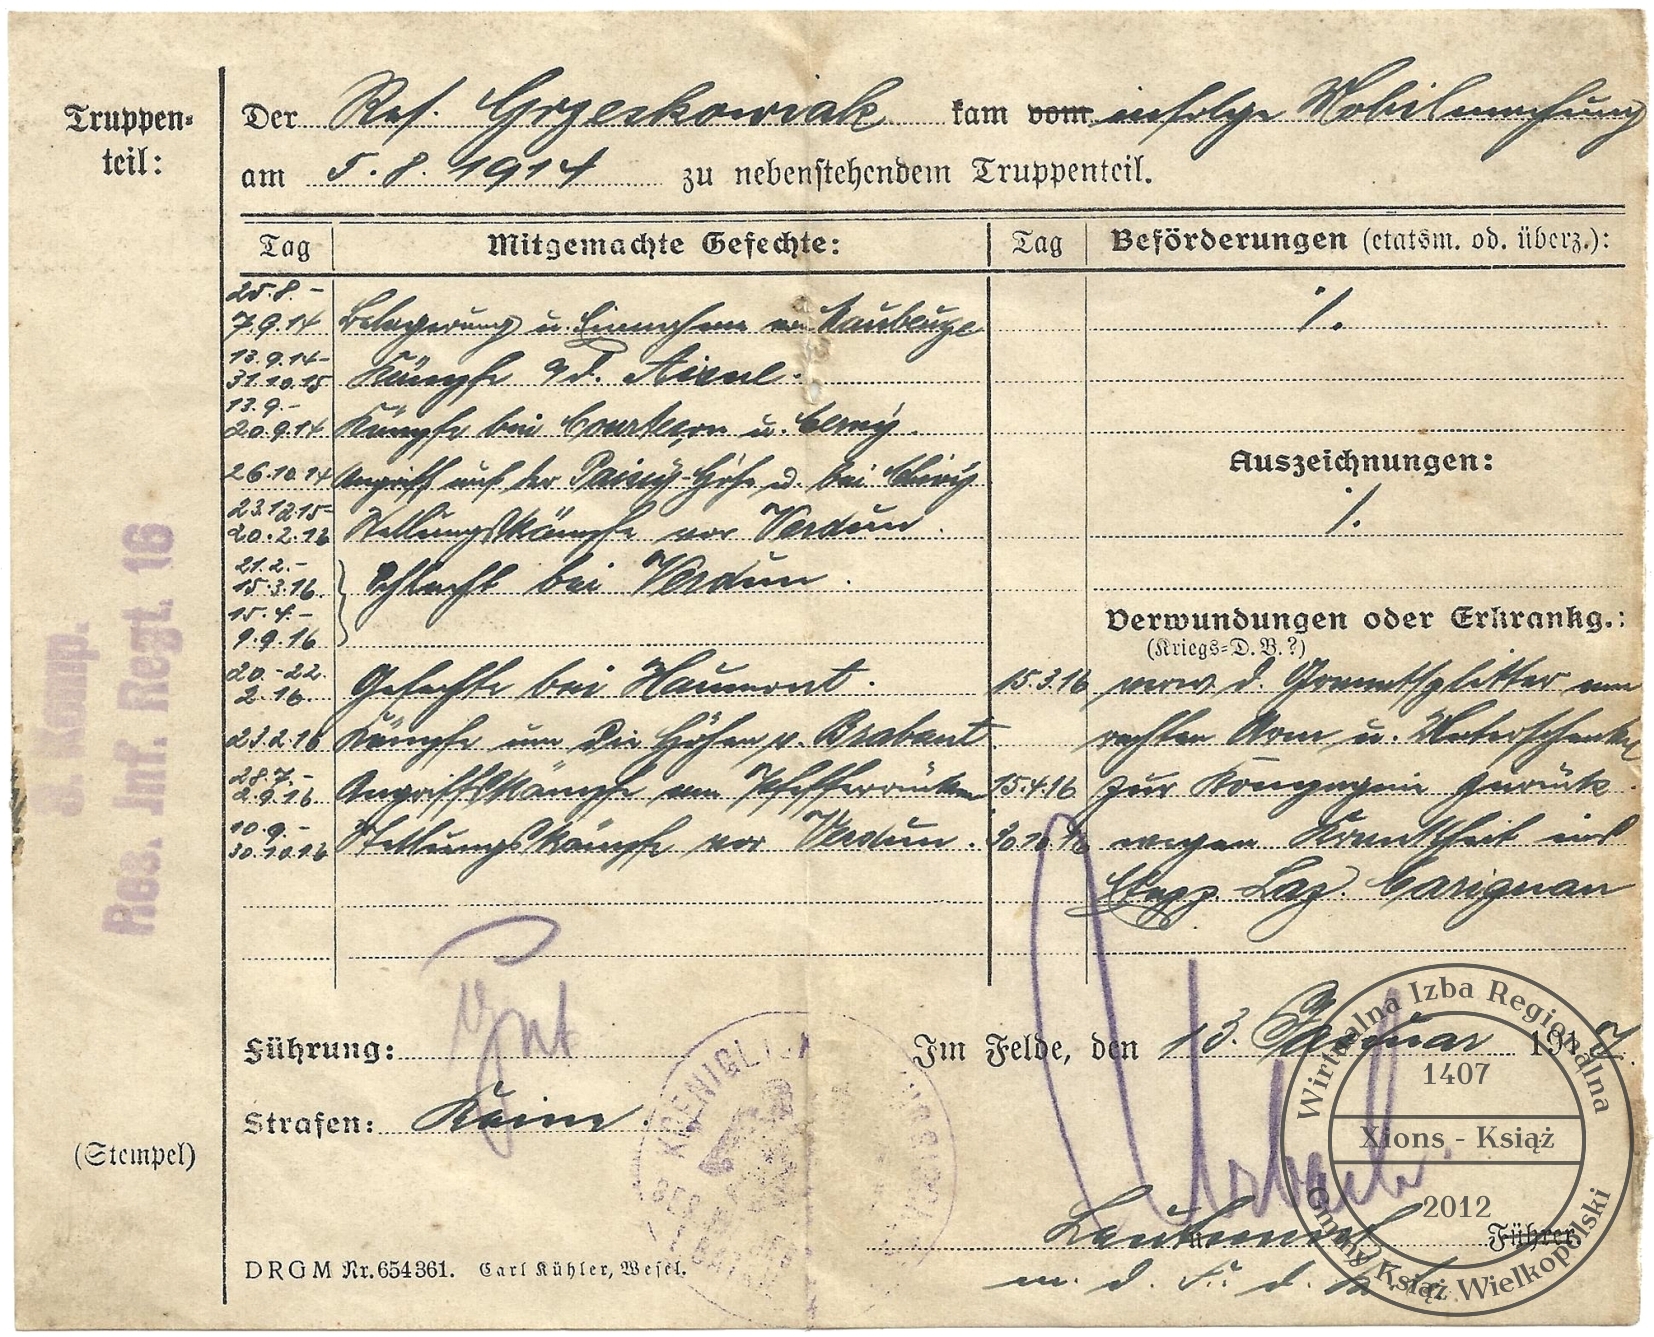 Truppen-
teil:
Der Res. Grzeskowiak kam vom infolge Mobilmachung
am 5.8.1914 zu nebenstehendem Truppenteil.
Tag Mitgemachte Gefechte: Tag Beförderungen (etatsm. od. überz.):
25.8.-
7.9.14 Belagerung u. Einnahme von Maubeuge ./.
13.9.14-
31.10.15 Kämpfe a d. Aisne.
13.9.-
20.9.14 Kämpfe bei Courtecon u. Cerny.
Auszeichnungen:
26.10.14 Angriff auf der Höhe bei
./.
23.12.15-
20.2.16 Stellungskämpfe vor Verdun.
21.2.-
15.3.16 Schlacht bei Verdun.
15.4.-
9.9.16
Verwundungen oder Erkrankg.:
(Kriegs-D. B.?)
20.-22.
2.16 Gefechte bei Haumont. 15.3.16 verw. d. Granatsplitter am
23.2.16 Kämpfe um die Höhen v. Brabant. rechten Arm u. Unterschenkel
28.7.-
2.9.16 Angriffskämpfe am Pfefferrücken 15.4.16 zur Kompagnie zurück.
10.9.-
30.10.16 Stellungskämpfe vor Verdun. 30.10.16 wegen Krankheit ins
Etapp. Laz. Carignan
Res. Inf. Regt. 16
Komp.
Führung: Gut
Im Felde, den 13. Januar 1917.
Strafen: Keine.
(Stempel)
KOENIGL.
Leutnant Führer
m. d. F. d. K.
DRGM Nr. 654361. Carl Kühler, Wesel.
Wirtualna Izba Regionalna
1407
Xions - Książ
2012
Gminy Książ Wielkopolski